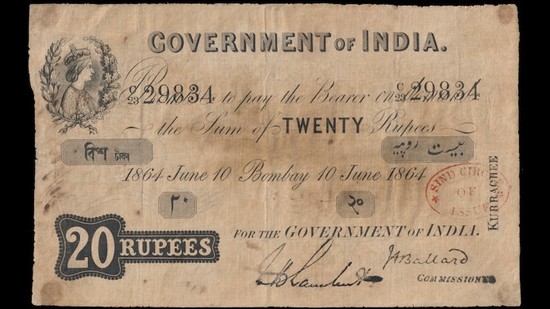 GOVERNMENT OF INDIA.
C/23 29834 to pay the Bearer on C/23 29834
the Sum of TWENTY Rupees
বিংশ টাকা بیست روپیہ
1864 June 10 Bombay 10 June 1864
SIND CIRCLE
OF
ISSUE
KURRACHEE
۲۰ २०
20 RUPEES
FOR THE GOVERNMENT OF INDIA.
J A Ballard
COMMISSIONER